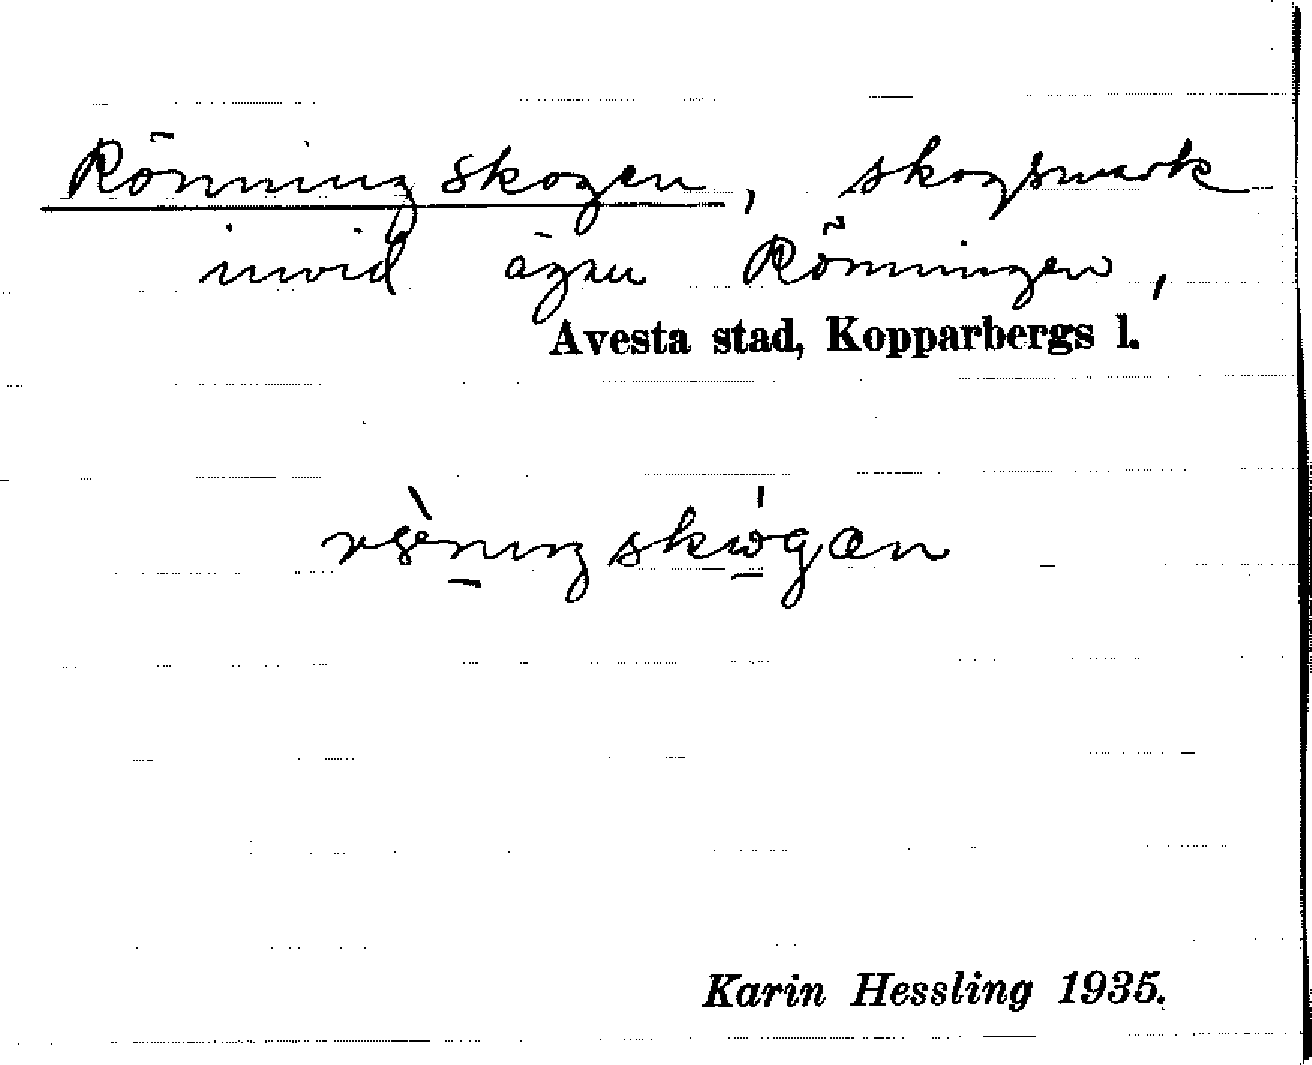 Rönningskogen, skogsmark
invid ägan Rönningen,
Avesta stad, Kopparbergs l.
Karin Hessling 1935.